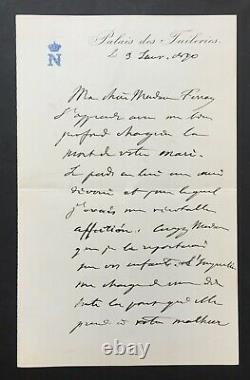 N
Palais des Tuileries.
Le 3 Janv. 1870
Ma chère Madame
J'apprends avec un bien
profond chagrin la
mort de votre mari.
Je perds en lui un ami
dévoué et pour lequel
j'avais une véritable
affection. Croyez Madame
que je la reporterai
sur vos enfants. L'Impératrice
me charge de vous dire
toute la part qu'elle
prend à votre malheur